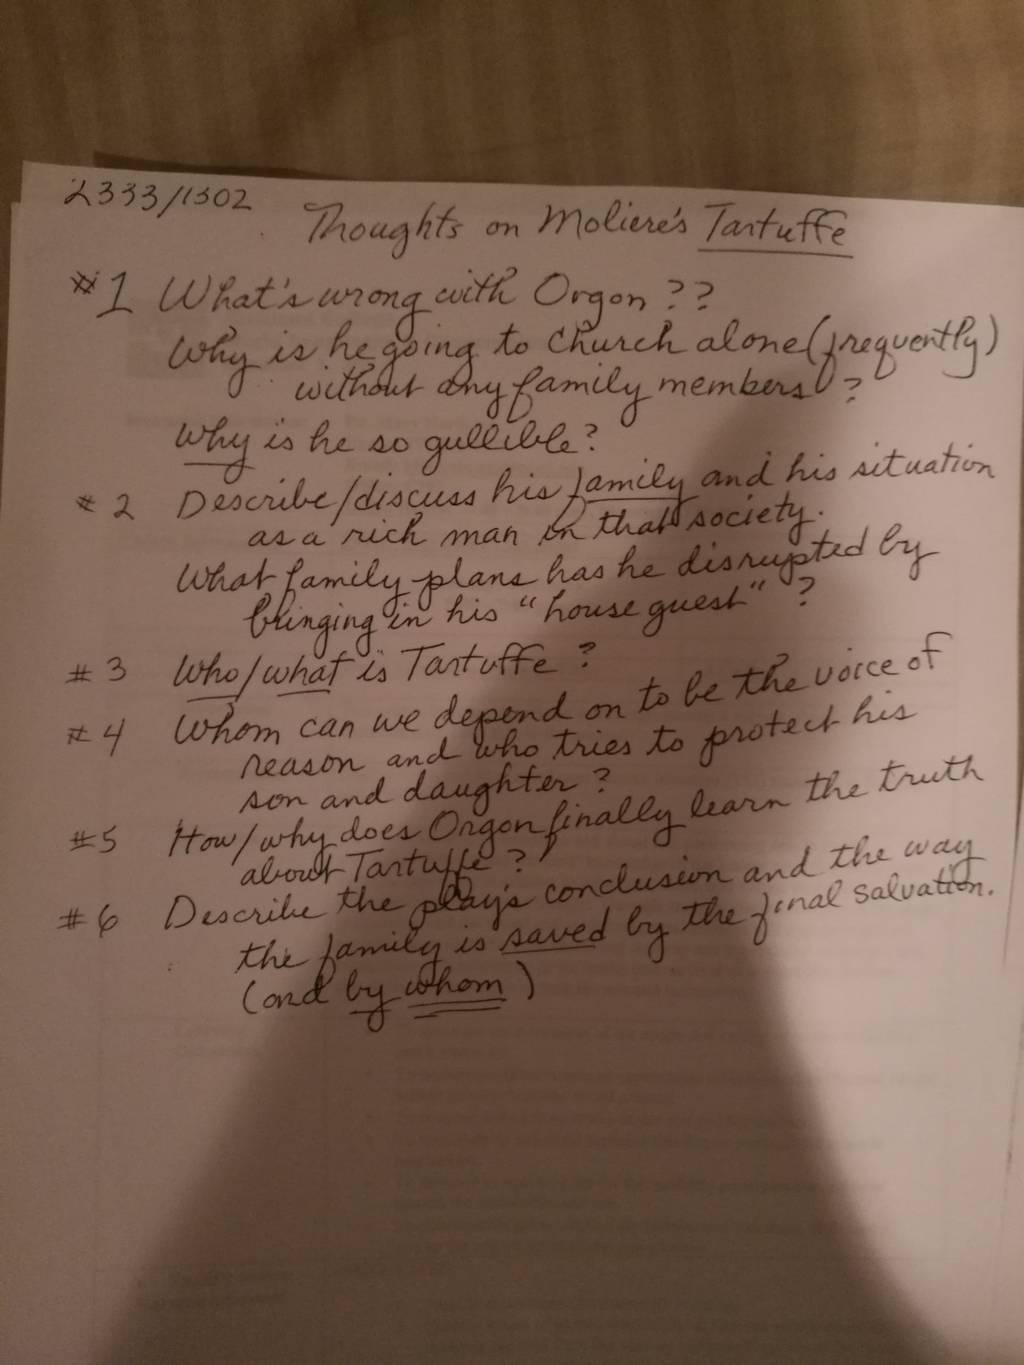 2333/1302
Thoughts on Moliere's Tartuffe
#1 What's wrong with Orgon ??
Why is he going to church alone (frequently)
without any family members ?
Why is he so gullible?
#2 Describe/discuss his family and his situation
as a rich man in that society.
What family plans has he disrupted by
bringing in his "house guest" ?
#3 Who/what is Tartuffe ?
#4 Whom can we depend on to be the voice of
reason and who tries to protect his
son and daughter ?
#5 How/why does Orgon finally learn the truth
about Tartuffe ?
#6 Describe the play's conclusion and the way
the family is saved by the final salvation.
(and by whom)